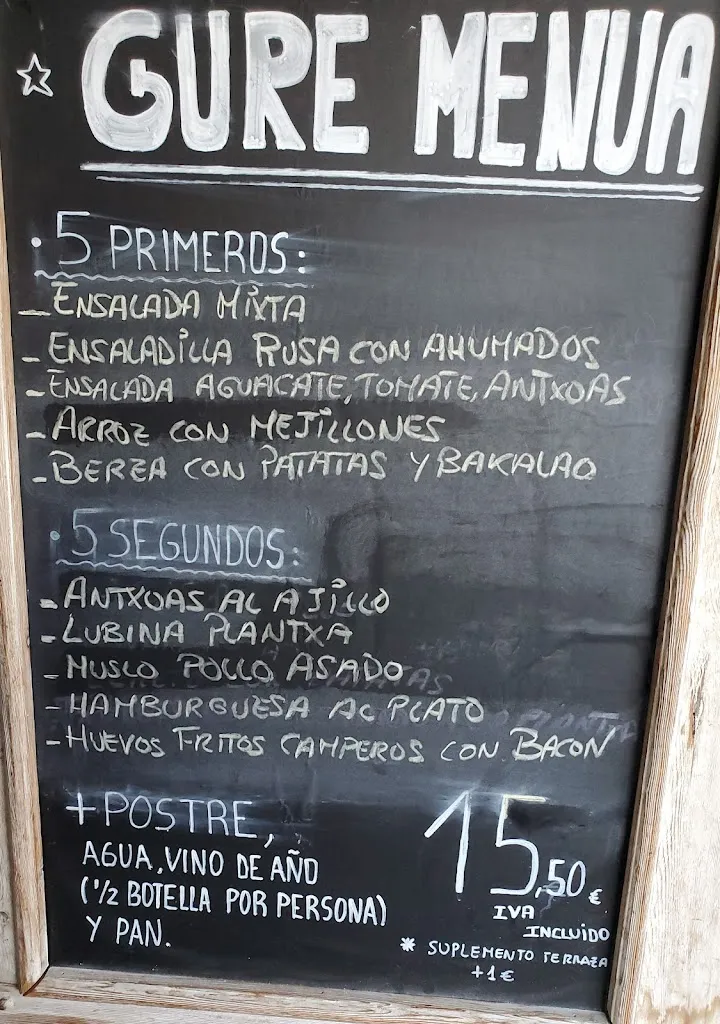 ☆ GURE MENUA
· 5 PRIMEROS:
- ENSALADA MIXTA
- ENSALADILLA RUSA CON AHUMADOS
- ENSALADA AGUACATE, TOMATE, ANTXOAS
- ARROZ CON MEJILLONES
- BERZA CON PATATAS Y BAKALAO
· 5 SEGUNDOS:
- ANTXOAS AL AJILLO
- LUBINA PLANTXA
- MUSLO POLLO ASADO
- HAMBURGUESA AL PLATO
- HUEVOS FRITOS CAMPEROS CON BACON
+ POSTRE,
AGUA, VINO DE AÑO
(1/2 BOTELLA POR PERSONA)
Y PAN.
15,50 €
IVA
INCLUIDO
* SUPLEMENTO TERRAZA
+1€